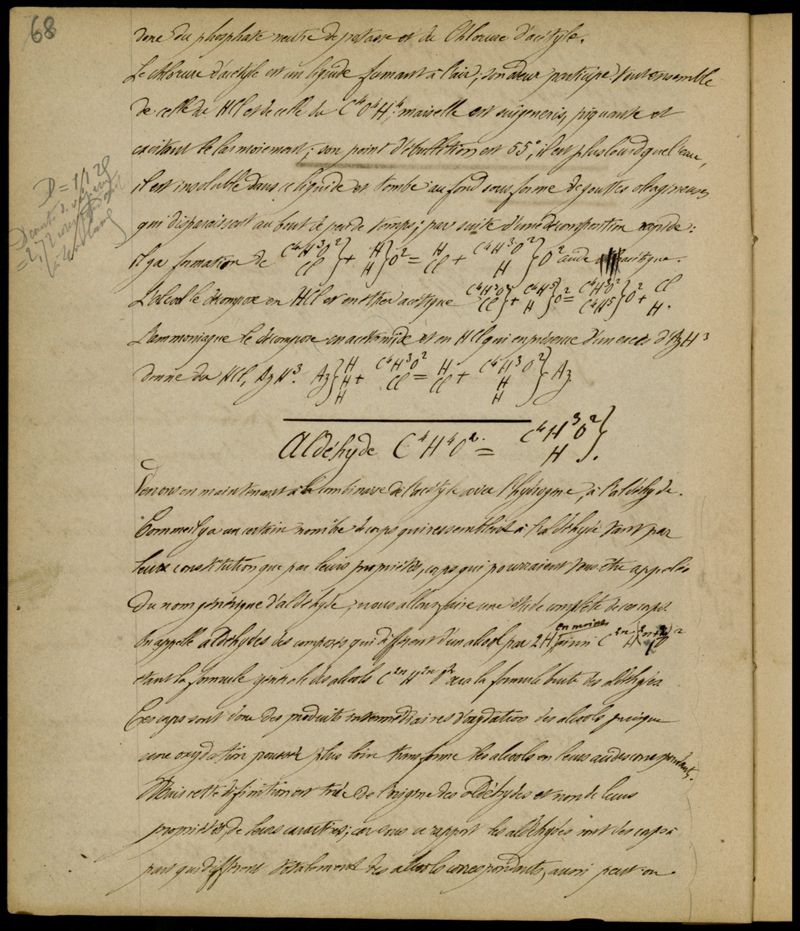 68
donc du phosphate neutre de potasse et du Chlorure d'acétyle.
Le chlorure d'acétyle est un liquide fumant à l'air, son odeur participe tout ensemble
de celle de HCl et de celle de C⁴O⁴H⁴ mais elle est suigeneris, piquante et
excitant le larmoiement; son point d'ébullition est 55°, il est plus lourd que l'eau,
D = 1,128
il est insoluble dans ce liquide et tombe au fond sous forme de gouttes oléagineuses
qui disparaissent au bout de peu de temps; par suite d'une décomposition rapide:
il y a formation de C⁴H³O² Cl } + H H } O² = H Cl + C⁴H³O² H } O² acide acétique.
L'alcool le décompose en HCl et en éther acétique C⁴H³O² Cl } + C⁴H⁵ H } O² = C⁴H³O² C⁴H⁵ } O² + Cl H.
L'ammoniaque le décompose en acétamide et en HCl qui en présence d'un excès d'AzH³
donne du HCl, AzH³. Az } H H H + C⁴H³O² Cl = H Cl + C⁴H³O² H H } Az
Aldéhyde C⁴H⁴O² = C⁴H³O² H }.
Passons maintenant à la combinaison de l'acétyle avec l'hydrogène, à l'aldéhyde.
Comme il y a un certain nombre de corps qui ressemblent à l'aldéhyde tant par
leur constitution que par leurs propriétés, corps qui pourraient tous être appelés
du nom générique d'aldéhyde, nous allons faire une étude complète de ces corps.
On appelle aldéhydes des composés qui diffèrent d'un alcool par 2H en moins
étant la formule générale des alcools C²ⁿH²ⁿO² sera la formule brute des aldéhydes
Ces corps sont donc des produits intermédiaires d'oxydation des alcools puisque
une oxydation poussée plus loin transforme les alcools en leurs acides correspondants.
Mais cette définition est tirée de l'origine des aldéhydes et non de leurs
propriétés, de leurs caractères; car sous ce rapport les aldéhydes sont des corps à
part qui diffèrent totalement des alcools correspondants, aussi peut-on